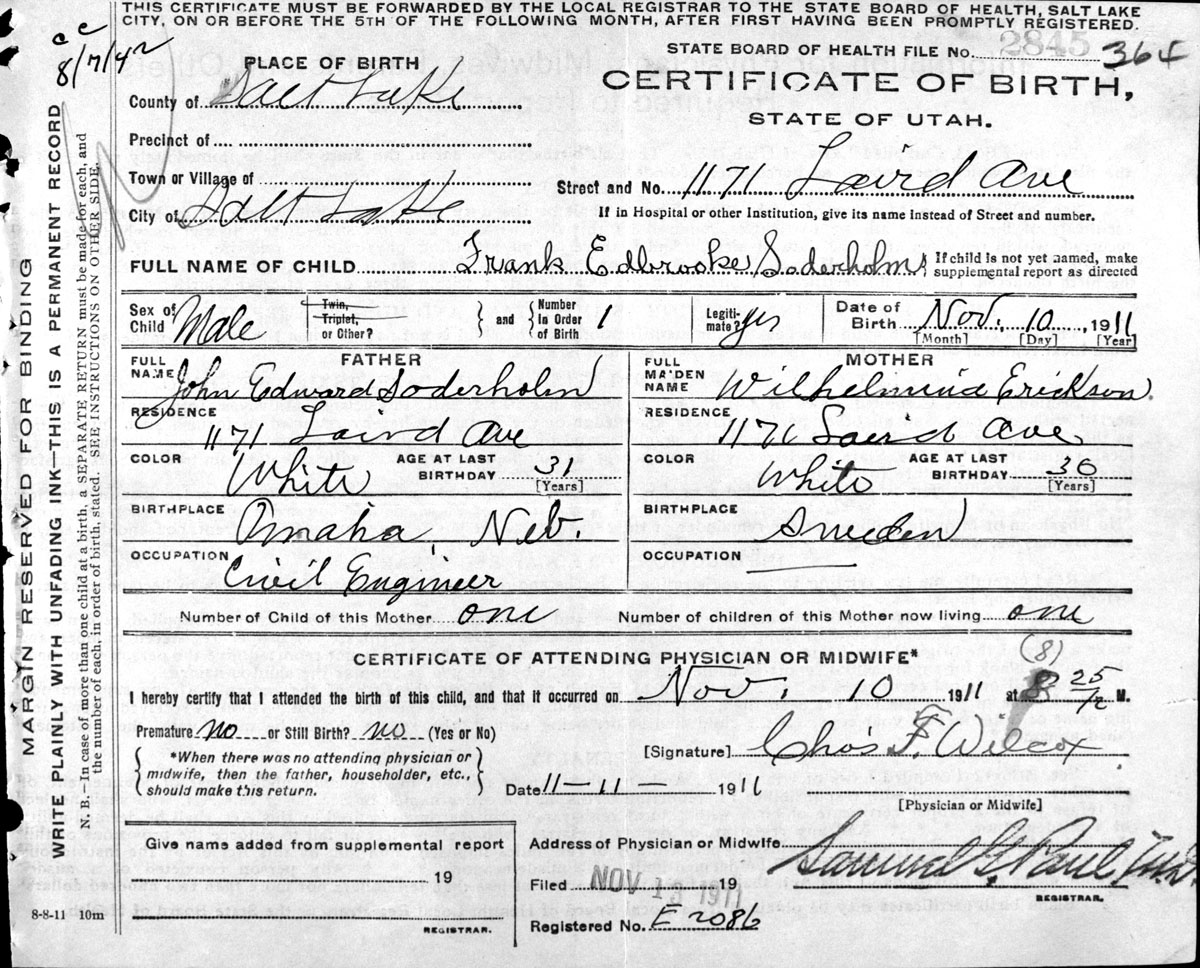 THIS CERTIFICATE MUST BE FORWARDED BY THE LOCAL REGISTRAR TO THE STATE BOARD OF HEALTH, SALT LAKE
CITY, ON OR BEFORE THE 5TH OF THE FOLLOWING MONTH, AFTER FIRST HAVING BEEN PROMPTLY REGISTERED.
cc
8/7/42
STATE BOARD OF HEALTH FILE No. 2845 364
PLACE OF BIRTH
CERTIFICATE OF BIRTH,
STATE OF UTAH.
County of Salt Lake
Precinct of
Town or Village of
Street and No. 1171 Laird Ave
City of Salt Lake
If in Hospital or other Institution, give its name instead of Street and number.
FULL NAME OF CHILD Frank Edbrooke Soderholm { If child is not yet named, make supplemental report as directed
Sex of Child Male Twin, Triplet, or Other? } and { Number in Order of Birth 1 Legitimate? yes Date of Birth Nov. 10, 1911
[Month] [Day] [Year]
FATHER
FULL NAME John Edward Soderholm
RESIDENCE 1171 Laird Ave
COLOR White AGE AT LAST BIRTHDAY 31 [Years]
BIRTHPLACE Omaha, Neb.
OCCUPATION Civil Engineer
MOTHER
FULL MAIDEN NAME Wilhelmina Erickson.
RESIDENCE 1171 Laird Ave
COLOR White AGE AT LAST BIRTHDAY 30 [Years]
BIRTHPLACE Sweden
OCCUPATION
Number of Child of this Mother one Number of children of this Mother now living one
CERTIFICATE OF ATTENDING PHYSICIAN OR MIDWIFE*
(8)
I hereby certify that I attended the birth of this child, and that it occurred on Nov. 10 1911 at 8 25 M.
Premature no or Still Birth? no (Yes or No)
{ *When there was no attending physician or midwife, then the father, householder, etc., should make this return. }
[Signature] Chas F. Wilcox
Date 11-11- 1911
[Physician or Midwife]
Give name added from supplemental report
19
REGISTRAR.
Address of Physician or Midwife
Samuel G. Paul
Filed NOV 13 1911 19
REGISTRAR.
Registered No. E 2086
8-8-11 10m
MARGIN RESERVED FOR BINDING
WRITE PLAINLY WITH UNFADING INK—THIS IS A PERMANENT RECORD
N. B.—In case of more than one child at a birth, a SEPARATE RETURN must be made for each, and
the number of each, in order of birth, stated. SEE INSTRUCTIONS ON OTHER SIDE.